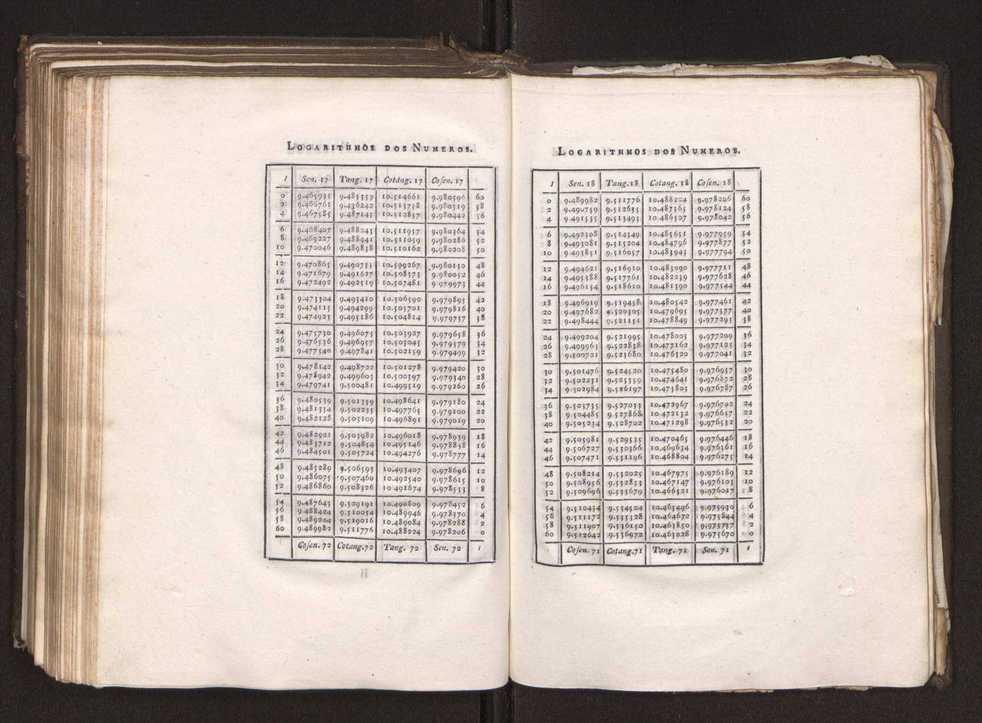 LOGARITHMOS DOS NUMEROS.
I Sen. 17 Tang. 17 Cotang. 17 Cosen. 17
0 9.465935 9.485339 10.514661 9.980596 60
2 9.466761 9.980519 58
4 9.467585 9.487143 10.512857 9.980442 56
6 9.468407 9.488043 10.511957 9.980364 54
8 9.469227 9.488941 10.511059 9.980286 52
10 9.470046 9.489838 10.510162 9.980208 50
12 9.470863 9.490733 9.980130 48
14 9.471679 9.491627 10.508373 9.980052 46
16 9.472492 9.492519 10.507481 9.979973 44
18 9.473304 9.493410 10.506590 9.979895 42
20 9.474115 9.494299 10.505701 9.979816 40
22 9.474923 9.495186 10.504814 9.979737 38
24 9.475730 9.496073 10.503927 9.979658 36
26 9.476536 9.496957 10.503043 9.979579 34
28 9.477340 9.497841 10.502159 9.979499 32
30 9.478142 9.498722 10.501278 9.979420 30
32 9.478942 9.499603 10.500397 9.979340 28
34 9.479741 9.500481 10.499519 9.979260 26
36 9.480539 9.501359 10.498641 9.979180 24
38 9.481334 9.502235 10.497765 9.979100 22
40 9.482128 10.496891 9.979019 20
42 9.482921 9.503982 10.496018 9.978939 18
44 9.483712 9.504854 10.495146 9.978858 16
46 9.484501 9.505724 10.494276 9.978777 14
48 9.485289 9.506593 10.493407 9.978696 12
50 9.486075 9.507460 10.492540 9.978615 10
52 9.486860 9.508326 10.491674 9.978533 8
54 9.487643 9.509191 10.490809 9.978452 6
56 9.488424 9.510054 10.489946 9.978370 4
58 9.489204 10.489084 9.978288 2
60 9.489982 9.511776 10.488224 9.978206 0
Cosen. 72 Cotang. 72 Tang. 72 Sen. 72 I
LOGARITHMOS DOS NUMEROS.
I Sen. 18 Tang. 18 Cotang. 18 Cosen. 18
0 9.489982 9.511776 10.488224 9.978206 60
2 9.490759 9.512635 10.487365 9.978124 58
4 9.491535 9.513493 10.486507 9.978042 56
6 9.492308 9.514349 10.485651 9.977959 54
8 9.493081 9.515204 10.484796 9.977877 52
10 9.493851 9.516057 10.483943 9.977794 50
12 9.494621 9.516910 10.483090 9.977711 48
14 9.495388 9.517761 10.482239 9.977628 46
16 9.496154 9.518610 10.481390 9.977544 44
18 9.496919 9.519458 10.480542 9.977461 42
20 9.497682 9.520305 10.479695 9.977377 40
22 9.498444 9.521151 10.478849 9.977293 38
24 9.499204 9.521995 10.478005 9.977209 36
26 9.499963 9.522838 10.477162 9.977125 34
28 9.500721 9.523680 10.476320 9.977041 32
30 9.501476 9.524520 10.475480 9.976957 30
32 9.502231 9.525359 10.474641 9.976872 28
34 9.502984 9.526197 10.473803 9.976787 26
36 9.503735 9.527033 10.472967 9.976702 24
38 9.504485 9.527868 10.472132 22
40 9.505234 9.528702 10.471298 9.976532 20
42 9.505981 9.529535 10.470465 9.976446 18
44 9.506727 9.530366 10.469634 9.976361 16
46 9.507471 9.531196 10.468804 9.976275 14
48 9.508214 9.532025 10.467975 9.976189 12
50 9.508956 9.532853 10.467147 9.976103 10
52 9.509696 9.533679 10.466321 9.976017 8
54 9.510434 9.534504 10.465496 9.975930 6
56 9.511172 9.535328 10.464672 9.975844 4
58 9.511907 9.536150 10.463850 9.975757 2
60 9.512642 9.536972 10.463028 9.975670 0
Cosen. 71 Cotang. 71 Tang. 71 Sen. 71 I